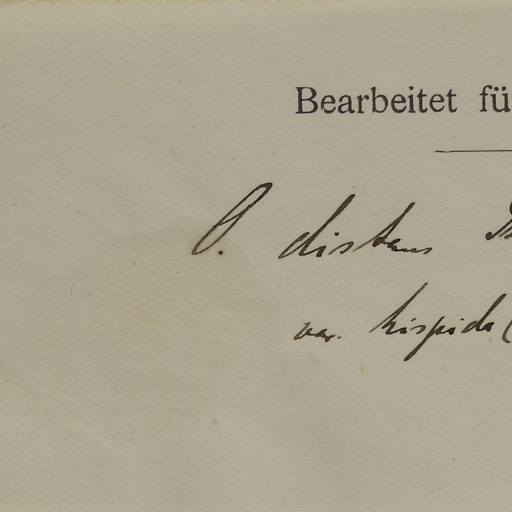 Bearbeitet fü
O. distans
var. hispida (